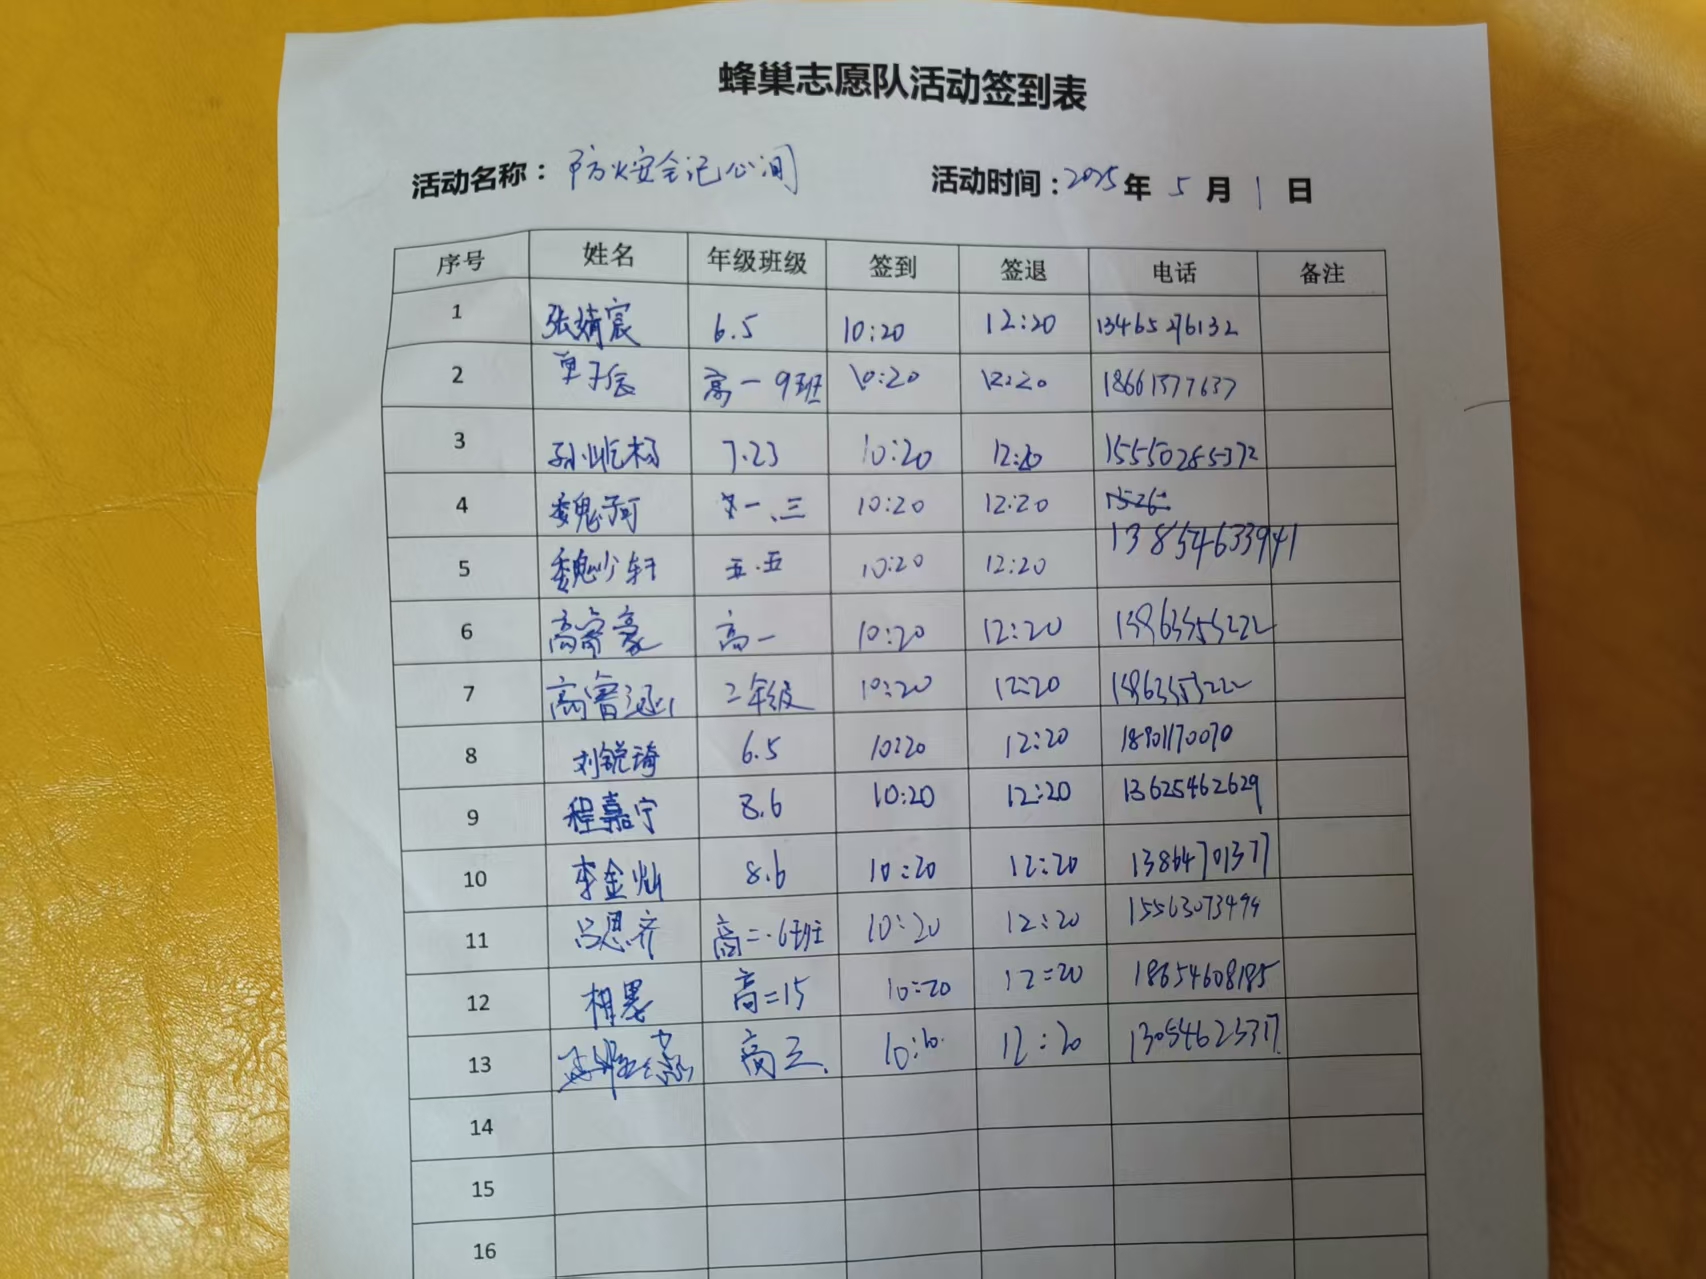 蜂巢志愿队活动签到表
活动名称：防火安全记心间 活动时间：2025年 5 月 1 日
序号 姓名 年级班级 签到 签退 电话 备注
1 张婧宸 6.5 10:20 12:20 13465276132
2 单子辰 高一9班 10:20 12:20 18661377637
3 孙屹杨 7.23 10:20 12:20 15550285372
4 魏子珂 一、三 10:20 12:20
5 魏少轩 五.五 10:20 12:20 13854633941
6 高睿豪 高一 10:20 12:20
7 高睿涵 二年级 10:20 12:20
8 刘锐琦 6.5 10:20 12:20 18901170070
9 程嘉宁 8.6 10:20 12:20 13625462629
10 李金灿 8.6 10:20 12:20 13864701377
11 吕思齐 高二.6班 10:20 12:20 15563073499
12 相墨 高二15 10:20 12:20 18654608185
13 高三 12:20 13054625317
14
15
16